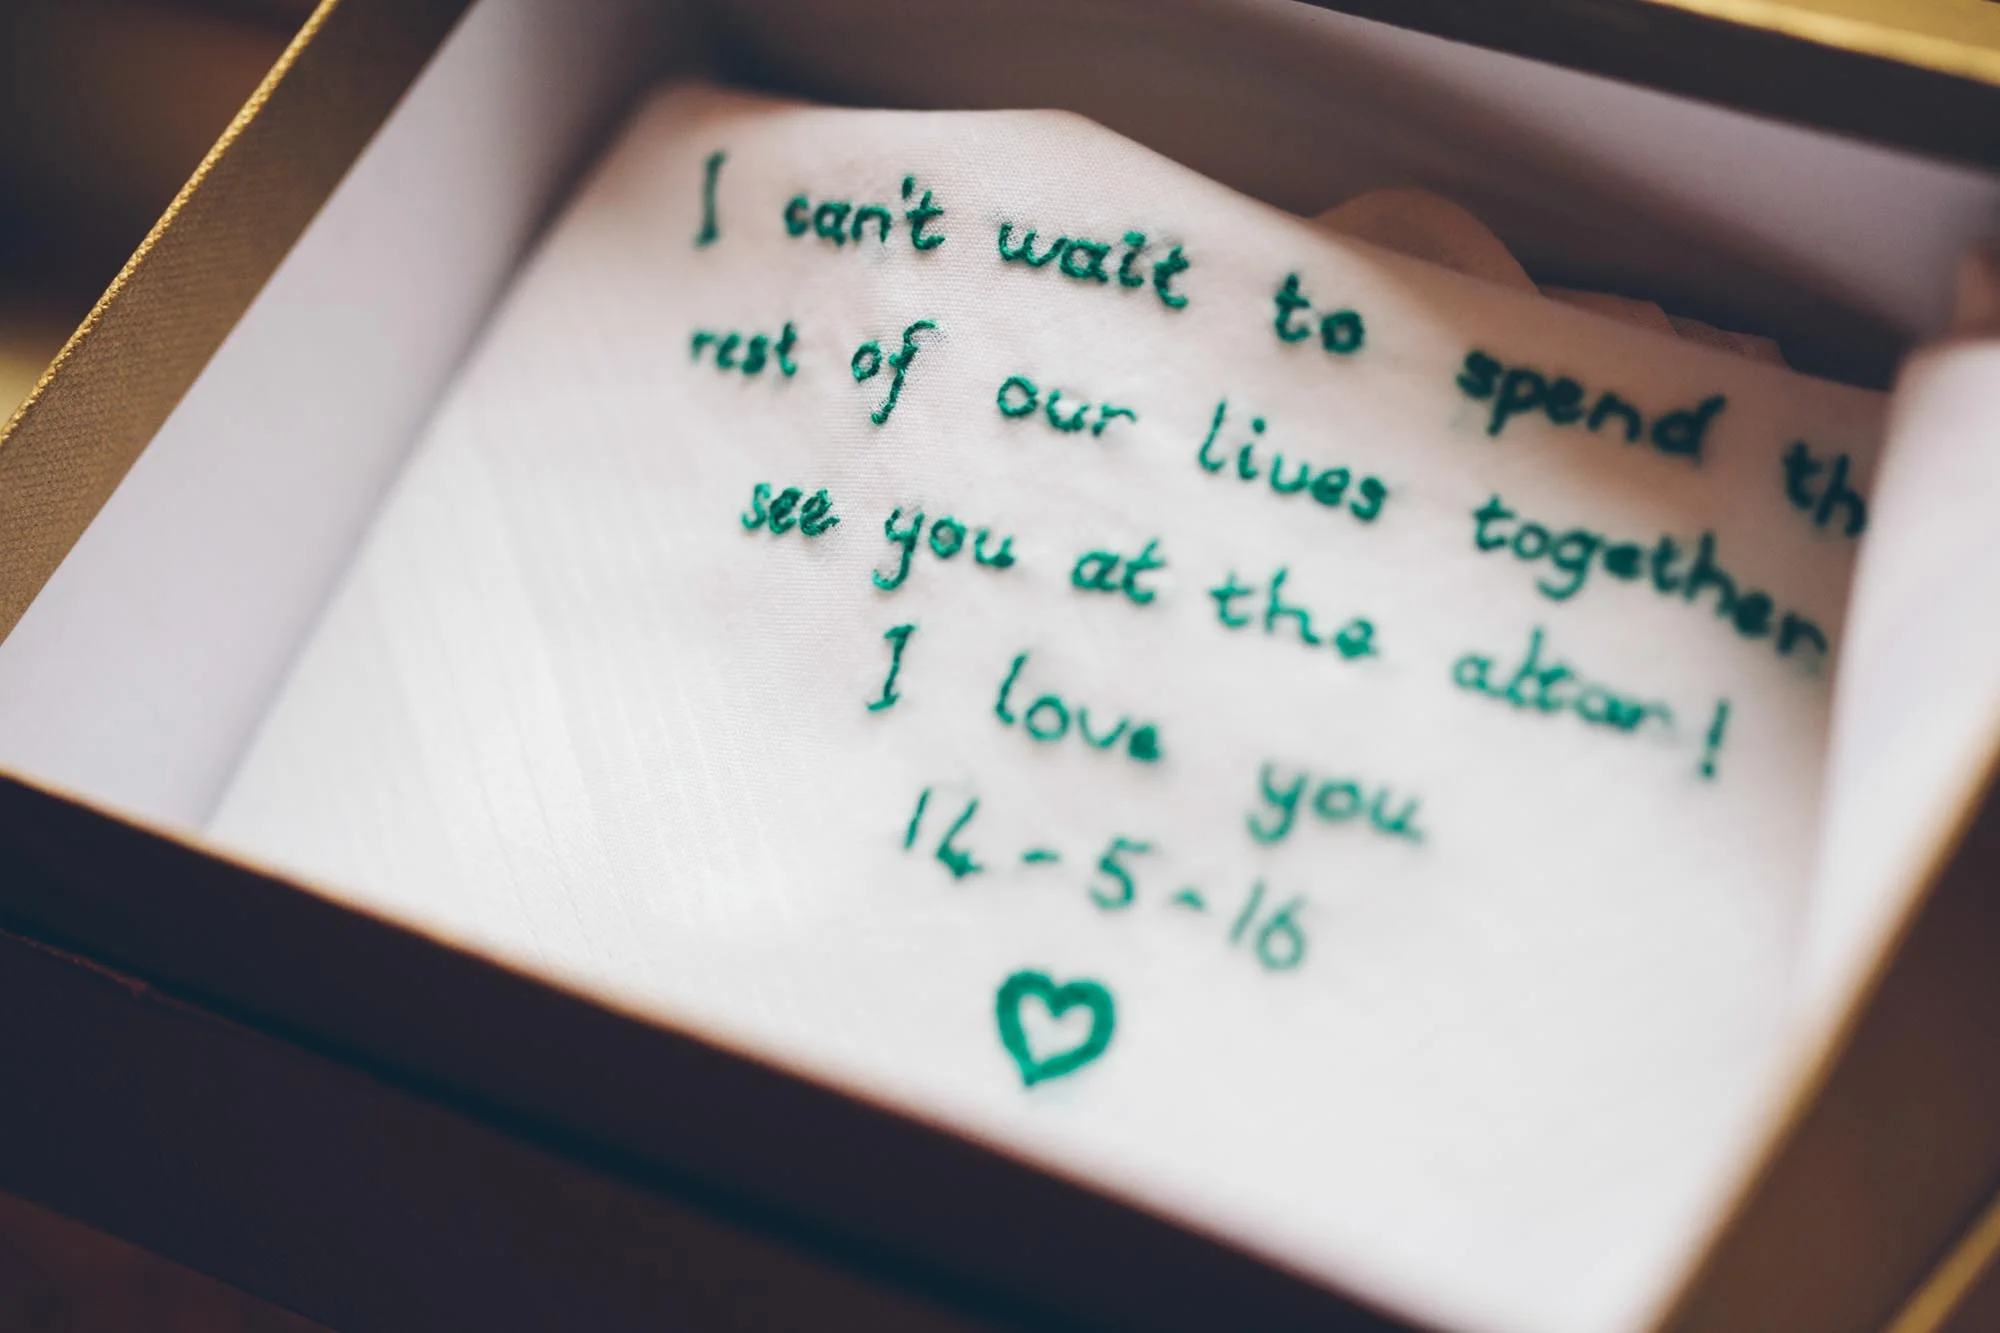 I can't wait to spend th
rest of our lives together
see you at the altar!
I love you
14-5-16